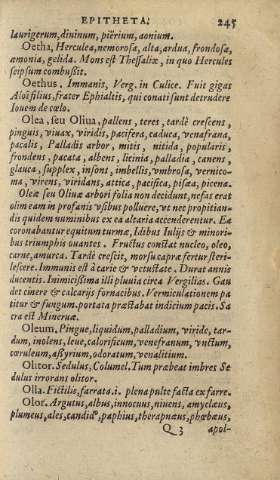 EPITHETA. 245
laurigerum, diuinum, piërium, aonium.
Oetha, Herculea, nemorosa, alta, ardua, frondosa,
æmonia, gelida. Mons est Thessaliæ, in quo Hercules
seipsum combussit.
Oethus. Immanis, Verg. in Culice. Fuit gigas
Aloëi filius, frater Ephialtis, qui conati sunt detrudere
Iouem de cœlo.
Olea, seu Oliua, pallens, teres, tardè crescens,
pinguis, viuax, viridis, pacifera, caduca, venafrana,
pacalis, Palladis arbor, mitis, nitida, popularis,
frondens, pacata, albens, licinia, palladia, canens,
glauca, supplex, insont, imbellis, vmbrosa, vernico-
ma, virens, viridans, attica, pacifica, pisæa, picena.
Oleæ seu Oliuæ arbori folia non decidunt, nefas erat
olim eam in profanis vsibus polluere, vt nec propitian-
dis quidem numinibus ex ea altaria accenderentur. Ea
coronabantur equitum turmæ, Idibus Iulijs & minori-
bus triumphis ouantes. Fructus constat nucleo, oleo,
carne, amurca. Tardè crescit, morsu capræ fertur steri-
lescere. Immunis est à carie & vetustate. Durat annis
ducentis. Inimicissima illi pluuia circa Vergilias. Gau
det cinere è calcarijs fornacibus. Vermiculationem pa-
titur & fungum. portata præstabat indicium pacis. Sa
cra est Mineruæ.
Oleum, Pingue, liquidum, palladium, viride, tar-
dum, inolens, leue, calorificum, venefranum, vnctum,
cœruleum, assyrium, odoratum, venalitium.
Olitor. Sedulus, Columel. Tum præbeat imbres Se
dulus irrorans olitor.
Olla. Fictilis, farrata. i. plena pulte facta ex farre.
Olor. Argutus, albus, innocuus, niuens, amyclæus,
plumeus, ales, candidus, paphius, therapnæus, phœbæus,
Q 3 apol-